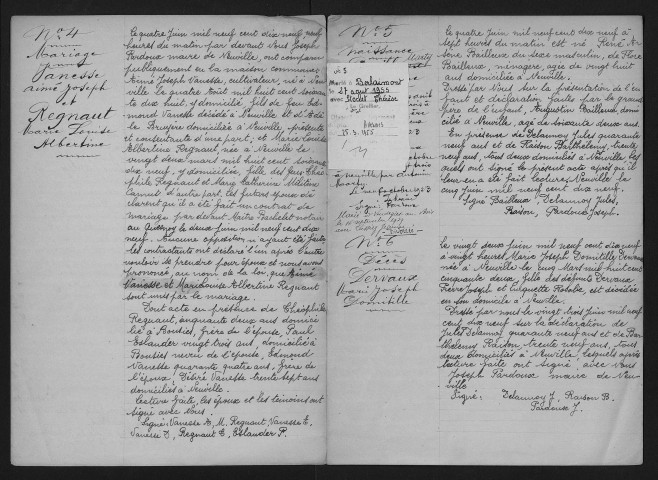 No 4
Mariage
Vanesse
aimé Joseph
et
Regnaut
Marie Louise
Albertine
Le quatre Juin mil neuf cent dix neuf, neuf
heures du matin par devant Nous Joseph
Pardoux maire de Neuville, ont comparu
publiquement en la maison commune
Aimé Joseph Vanesse cultivateur, né à Neu-
ville le quatre août mil huit cent soixante
dix huit, y domicilié, fils de feu Ed-
mond Vanesse décédé à Neuville et d'
la Bruyère domiciliée à Neuville, présente
et consentante d'une part, et Marie Louise
Albertine Regnaut, née à Neuville le
vingt deux mars mil huit cent soixante
dix neuf, y domiciliée, fille des feus Théo-
phile Regnaut et Mary Catherine
d'autre part. Les futurs époux dé-
clarent qu'il a été fait un contrat de
mariage par devant Maître Bachelet notaire
au Quesnoy le deux Juin mil neuf cent dix
neuf. Aucune opposition n'ayant été faite,
les contractants ont déclaré l'un après l'autre
vouloir se prendre pour époux et nous avons
prononcé, au nom de la loi, que Aimé
Vanesse et Marie Louise Albertine Regnaut
sont unis par le mariage.
Dont acte en présence de Théophile
Regnaut, cinquante deux ans domici-
lié à Bousies, frère de l'épouse, Paul
Eslauder vingt trois ans, domicilié à
Bousies neveu de l'épouse, Edmond
Vanesse quarante quatre ans, frère de
l'époux, Désiré Vanesse trente sept ans
domiciliés à Neuville.
Lecture faite, les époux et les témoins ont
signé avec Nous.
Signé: Vanesse A, M. Regnaut, Vanesse E,
Vanesse D, Regnaut E, Eslauder P.
No 5
Naissance
Marié à Balaimont
le 27 aout 1955
avec Moclet Thérèse
25.9.1955
No 6
Décès
Dervaux
Marie Joseph
Domitille
Le quatre Juin mil neuf cent dix neuf à
sept heures du matin est né René Ar-
sène Bailleux du sexe masculin, de Flore
Bailleux, ménagère, âgée de vingt huit
ans domiciliée à Neuville.
Dressé par Nous sur la présentation de l'en-
fant et déclaration faites par le grand
père de l'enfant, Augustin Bailleux domi-
cilié à Neuville, âgé de soixante deux ans.
En présence de Delaunoy Jules quarante
neuf ans et de Raison Barthélemy, trente
neuf ans, tous deux domiciliés à Neuville les-
quels ont signé le présent acte après qu'il
leur en a été fait lecture. Neuville le
cinq Juin mil neuf cent dix neuf.
Signé Bailleux Delaunoy Jules,
Raison, Pardoux Joseph.
Le vingt deux Juin mil neuf cent dix neuf
à vingt heures Marie Joseph Domitille Dervaux
née à Neuville le cinq Mars mil huit cent
cinquante deux, fille des défunts Dervaux
Pierre Joseph et Culquette, est décédée
en son domicile à Neuville.
Dressé par nous le vingt trois Juin mil neuf
cent dix neuf sur la déclaration de
Jules Delaunoy quarante neuf ans et de Bar-
thélemy Raison, trente neuf ans, tous
deux domiciliés à Neuville, lesquels après
lecture faite ont signé, avec Nous
Joseph Pardoux maire de Neu-
ville.
Signé: Delaunoy J, Raison B.
Pardoux J.